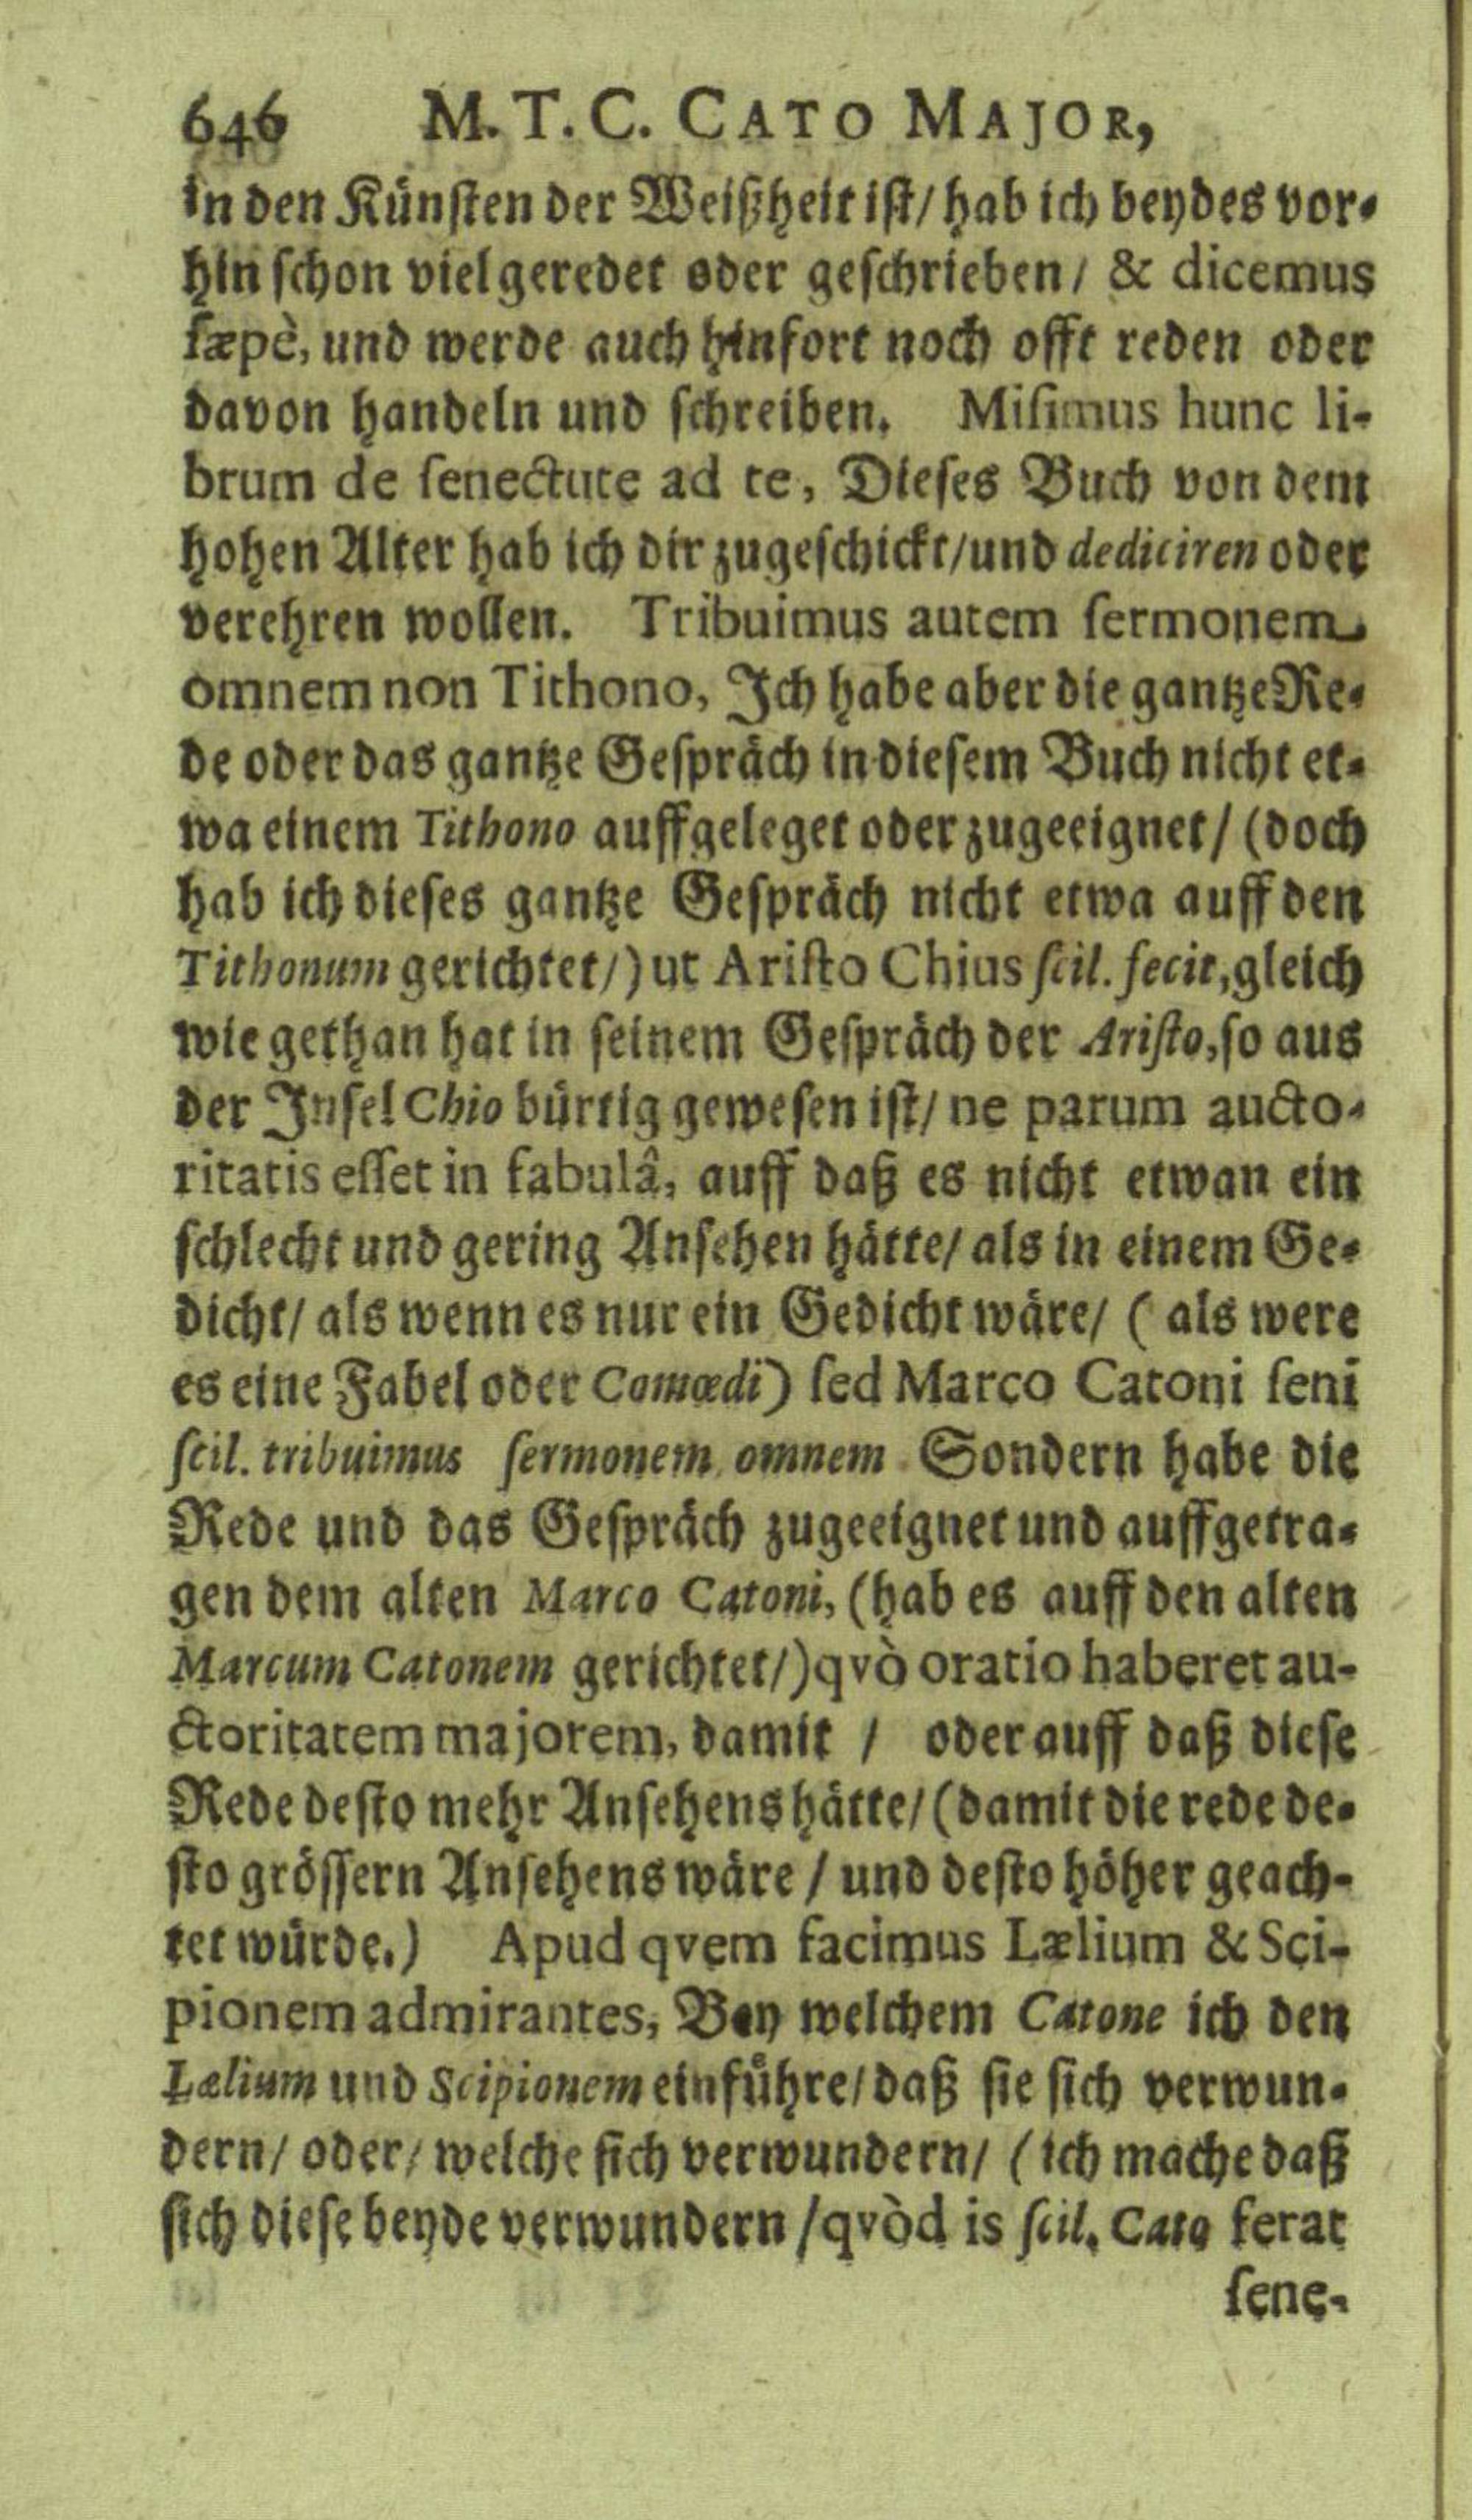 646 M. T. C. CATO MAJOR,
in den Künſten der Weißheit iſt/ hab ich beydes vor-
hin ſchon viel geredet oder geſchrieben/ & dicemus
ſæpè, und werde auch hinfort noch offt reden oder
davon handeln und ſchreiben. Miſimus hunc li-
brum de ſenectute ad te, Dieſes Buch von dem
hohen Alter hab ich dir zugeſchickt/ und dediciren oder
verehren wollen. Tribuimus autem ſermonem
omnem non Tithono, Ich habe aber die gantze Re-
de oder das gantze Geſpräch in dieſem Buch nicht et-
wa einem Tithono auffgeleget oder zugeeignet/ (doch
hab ich dieſes gantze Geſpräch nicht etwa auff den
Tithonum gerichtet/) ut Ariſto Chius ſcil. fecit, gleich
wie gethan hat in ſeinem Geſpräch der Ariſto, ſo aus
der Inſel Chio bürtig geweſen iſt/ ne parum aucto-
ritatis eſſet in fabulâ, auff daß es nicht etwan ein
ſchlecht und gering Anſehen hätte/ als in einem Ge-
dicht/ als wenn es nur ein Gedicht wäre/ ( als were
es eine Fabel oder Comœdi) ſed Marco Catoni ſeni
ſcil. tribuimus ſermonem omnem Sondern habe die
Rede und das Geſpräch zugeeignet und auffgetra-
gen dem alten Marco Catoni, (hab es auff den alten
Marcum Catonem gerichtet/) qvò oratio haberet au-
ctoritatem majorem, damit / oder auff daß dieſe
Rede deſto mehr Anſehens hätte/ (damit die rede de-
ſto gröſſern Anſehens wäre / und deſto höher geach-
tet würde.) Apud qvem facimus Lælium & Sci-
pionem admirantes, Bey welchem Catone ich den
Lælium und Scipionem einführe/ daß ſie ſich verwun-
dern/ oder/ welche ſich verwundern/ (ich mache daß
ſich dieſe beyde verwundern / qvòd is ſcil. Cato ferat
ſene-